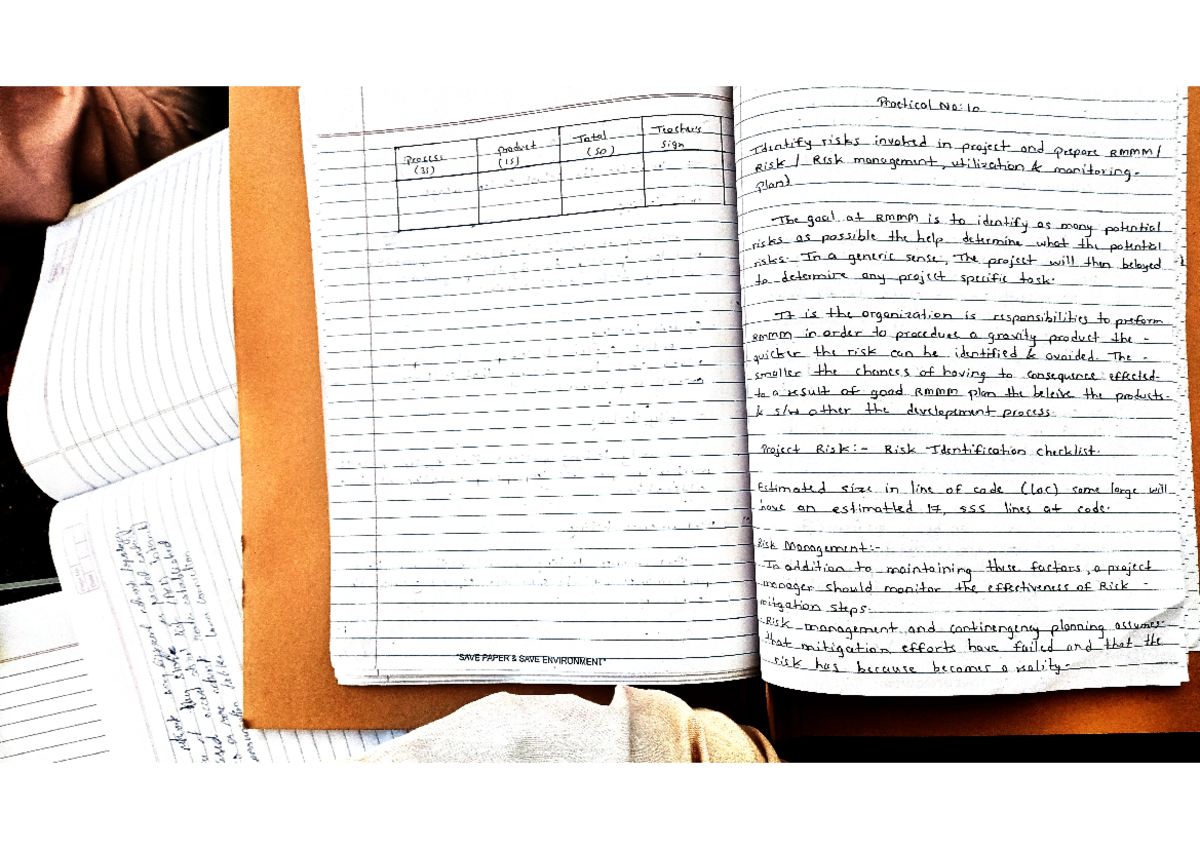 Process Product Total Teacher's
(35) (15) (50) Sign
"SAVE PAPER & SAVE ENVIRONMENT"
Practical No: 10
Identify risks involved in project and prepare RMMM/
Risk / Risk management, utilization & monitoring.
Plan)
The goal at RMMM is to identify as many potential
risks as possible the help determine what the potential
risks. In a generic sense, The project will then belayed
to determire any project specific task.
It is the organization is responsibilities to preform
RMMM in order to procedure a gravity product the -
quicker the risk can be identified & avoided. The -
smaller the chances of having to consequence effected.
to a result of good RMMM plan the beleive the products.
& s/w other the developement process.
Project Risk:- Risk Identification checklist.
Estimated size in line of code (loc) some large will
have an estimatted 17, 555 lines at code.
Risk Management:-
In addition to maintaining these factors, a project
manager should monitor the effectiveness of Risk -
mitgation steps.
Risk management and continengency planning assumes
that mitigation efforts have failed and that the
risk has because becomes a reality.